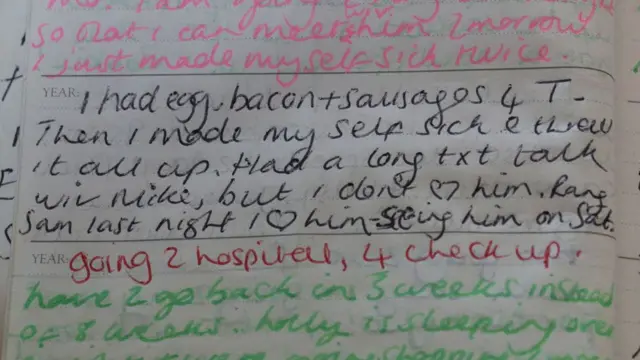 so that i can meet him 2morrow
I just made myself sick twice.
YEAR: I had egg, bacon + sausages 4 T-
Then I made my self sick & threw
it all up. Had a long txt talk
wiv Mike, but I don't ♡ him. Rang
Sam last night I ♡ him - seeing him on Sat.
YEAR: going 2 hospital, 4 check up.
have 2 go back in 3 weeks instead
of 8 weeks. holly is sleeping over